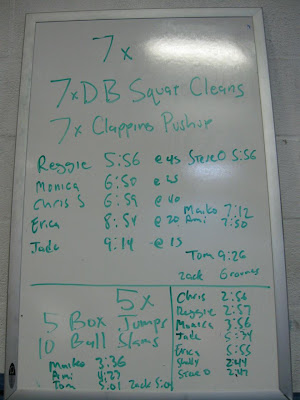 7x
7x DB Squat Cleans
7x Clapping Pushup
Reggie 5:56 @ 45 Steve O 5:56
Monica 6:50 @ 25
Chris S 6:59 @ 40
Maiko 7:12
Erica 8:54 @ 20 Ami 7:50
Jada 9:14 @ 15
Tom 9:26
Zack 6 rounds
5x
5 Box Jumps
10 Ball Slams
Maiko 3:36
Ami 4:27
Tom 5:01 Zack 5:01
Chris 2:56
Reggie 2:57
Monica 3:56
Jada 5:34
Erica 5:55
Shelly 2:44
Steve O 2:47